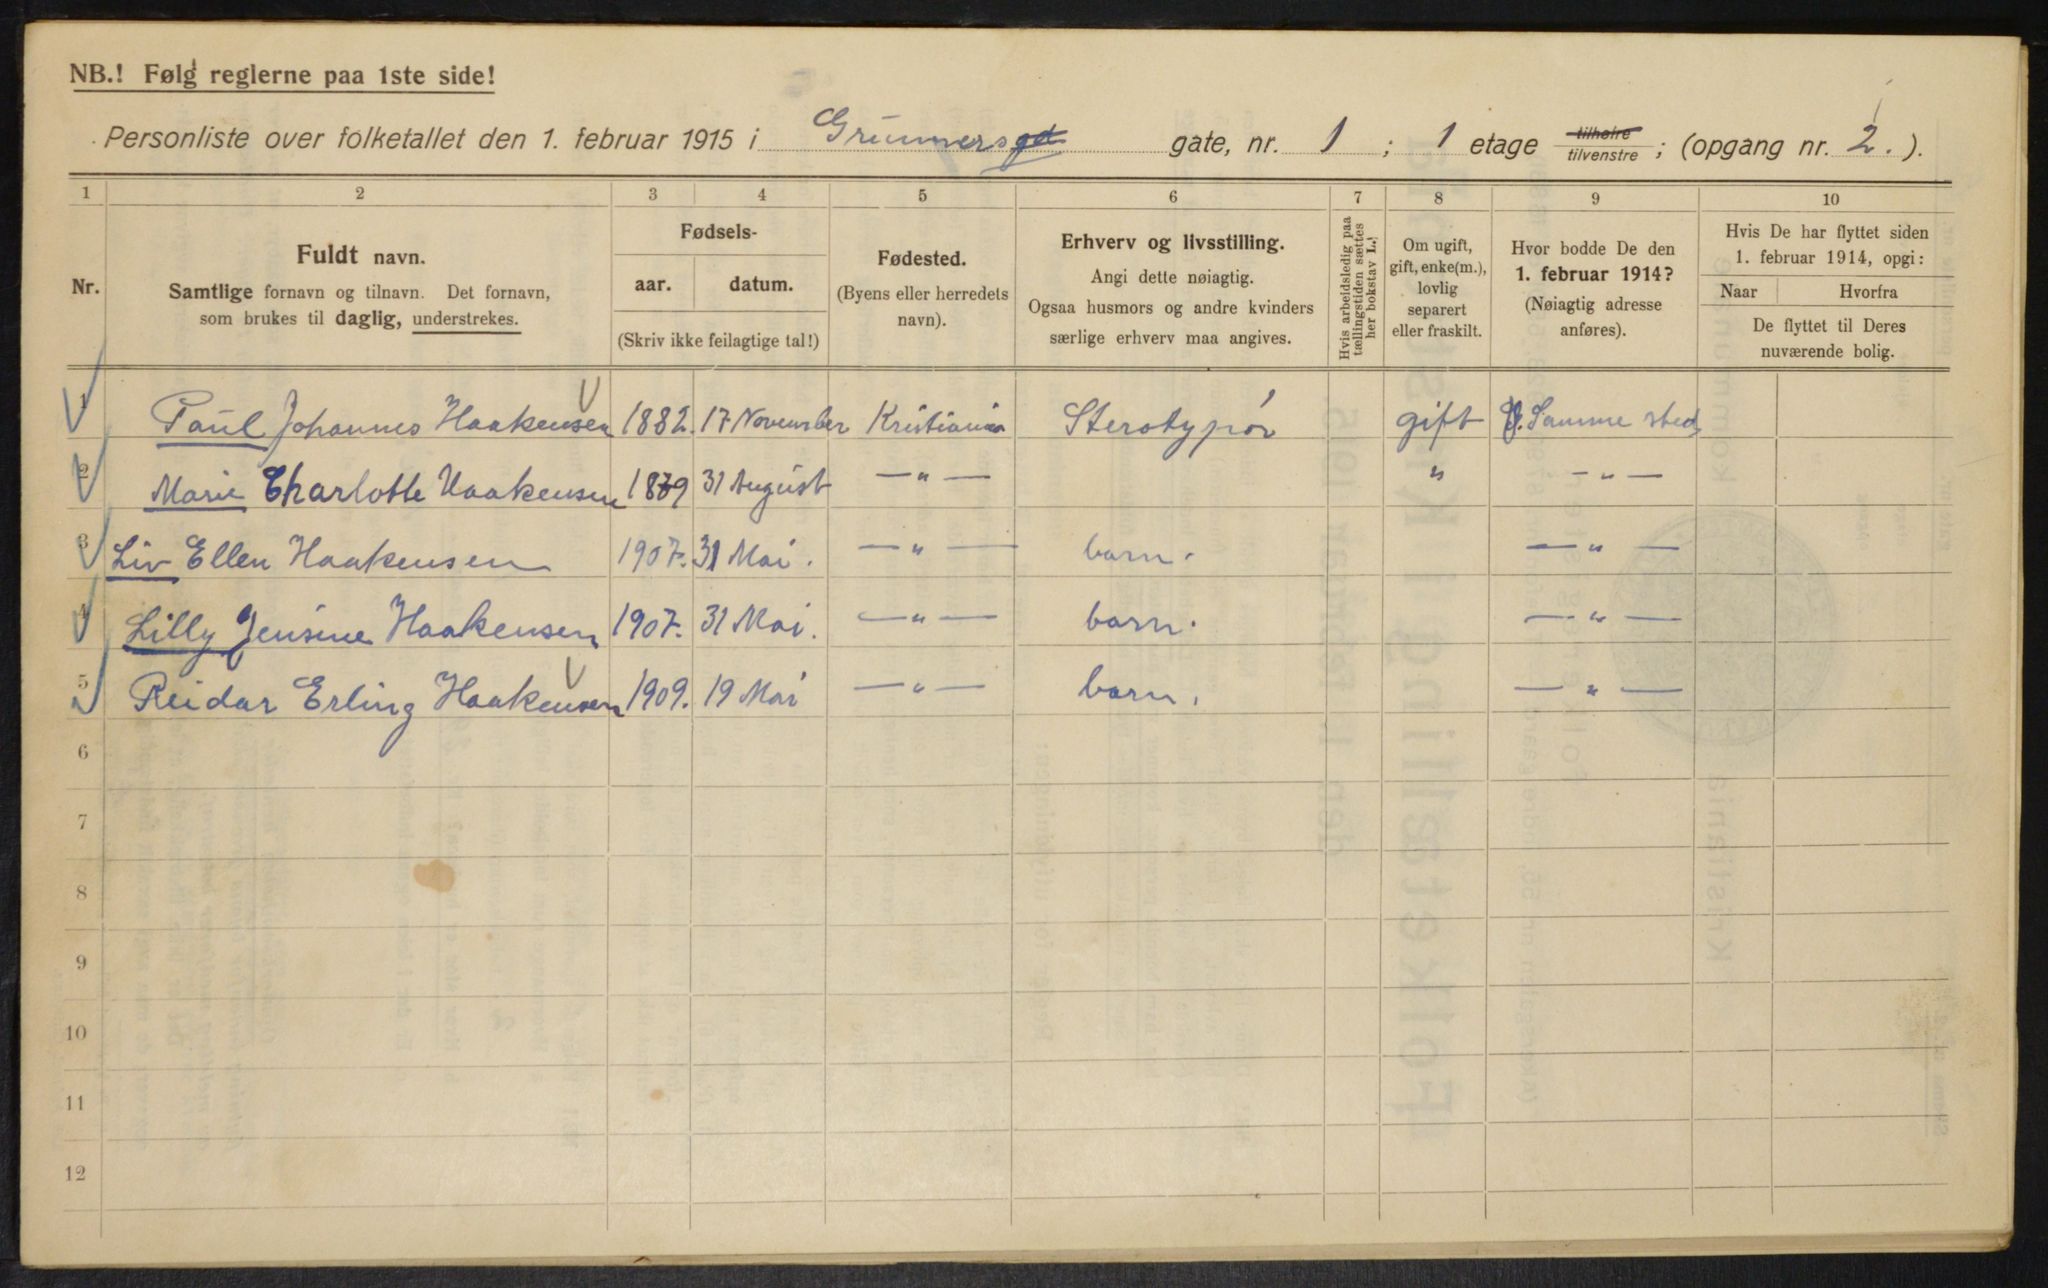 NB.! Følg reglerne paa 1ste side!
Personliste over folketallet den 1. februar 1915 i Grünersgt gate, nr. 1 ; 1 etage tilhøire tilvenstre ; (opgang nr. 2. ).
1 2 3 4 5 6 7 8 9 10
Nr.
Fuldt navn.
Samtlige fornavn og tilnavn. Det fornavn,
som brukes til daglig, understrekes.
Fødsels-
aar. datum.
(Skriv ikke feilagtige tal!)
Fødested.
(Byens eller herredets
navn).
Erhverv og livsstilling.
Angi dette nøiagtig.
Ogsaa husmors og andre kvinders
særlige erhverv maa angives.
Hvis arbeidsledig paa
tællingstiden sættes
her bokstav L.!
Om ugift,
gift, enke(m.),
lovlig
separert
eller fraskilt.
Hvor bodde De den
1. februar 1914?
(Nøiagtig adresse
anføres).
Hvis De har flyttet siden
1. februar 1914, opgi:
Naar Hvorfra
De flyttet til Deres
nuværende bolig.
1 Paul Johannes Haakensen 1882. 17 November Kristiania Sterotypør gift Samme sted
2 Marie Charlotte Haakensen 1879 31 August —"— " —"—
3 Liv Ellen Haakensen 1907. 31 Mai. —"— barn. —"—
4 Lilly Jensine Haakensen 1907. 31 Mai. —"— barn. —"—
5 Reidar Erling Haakensen 1909. 19 Mai —"— barn. —"—
6
7
8
9
10
11
12